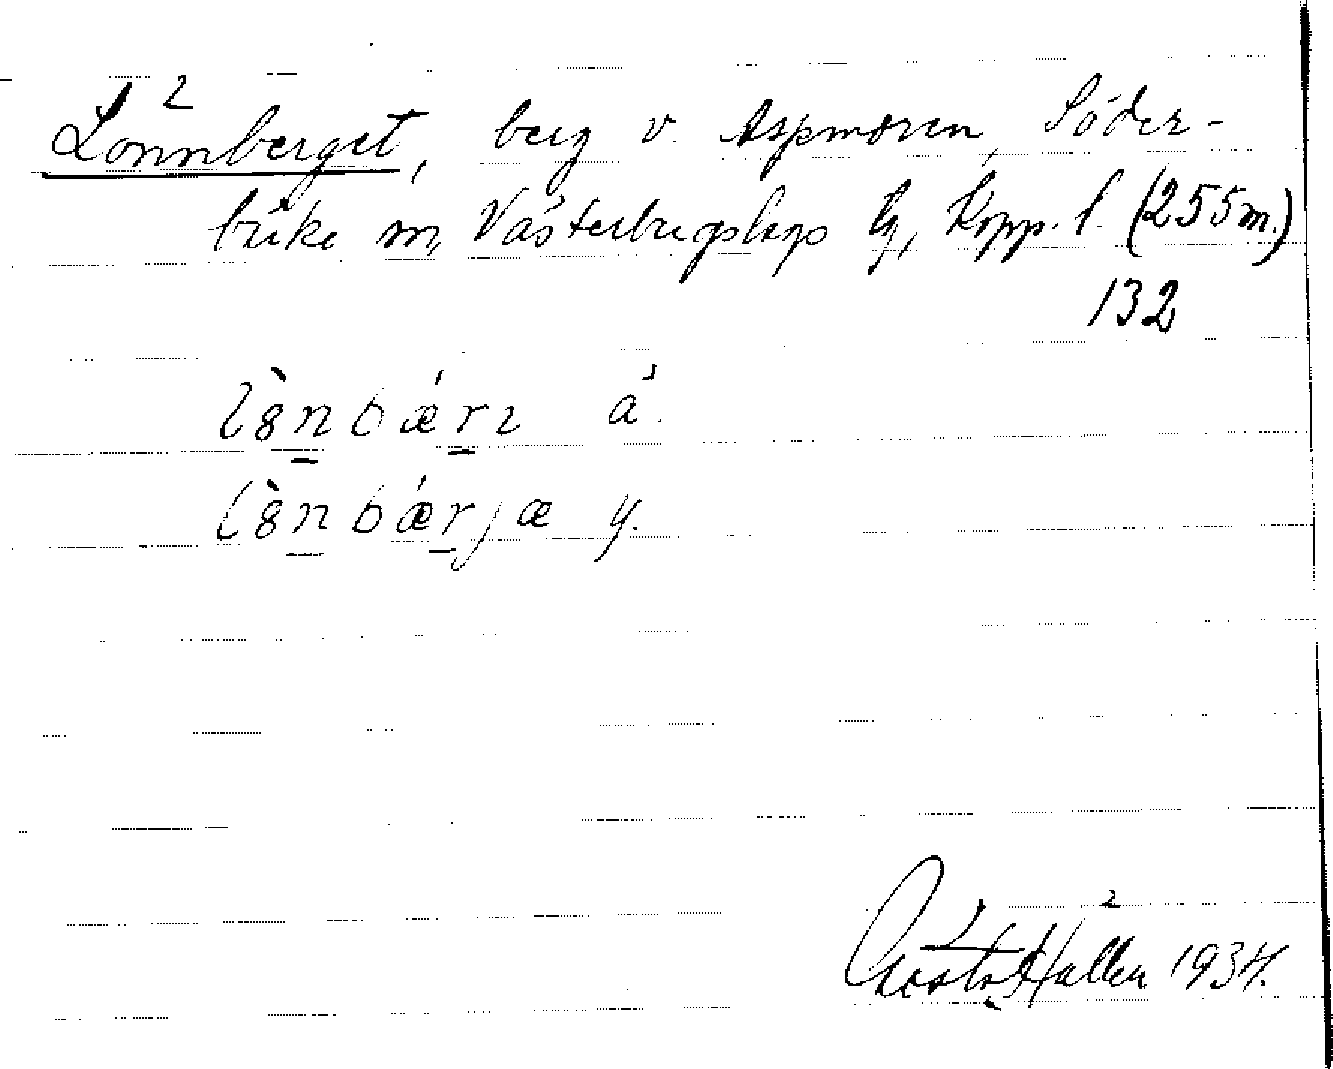 Lönnberget, berg v. Aspmoren, Söder-
bärke sn, Västerbergslags tg, Kopp. l. (255 m.)
132
lȍnbǽrɩ ä.
lȍnbǽrjæ y.
Gösta Hallén 1934.